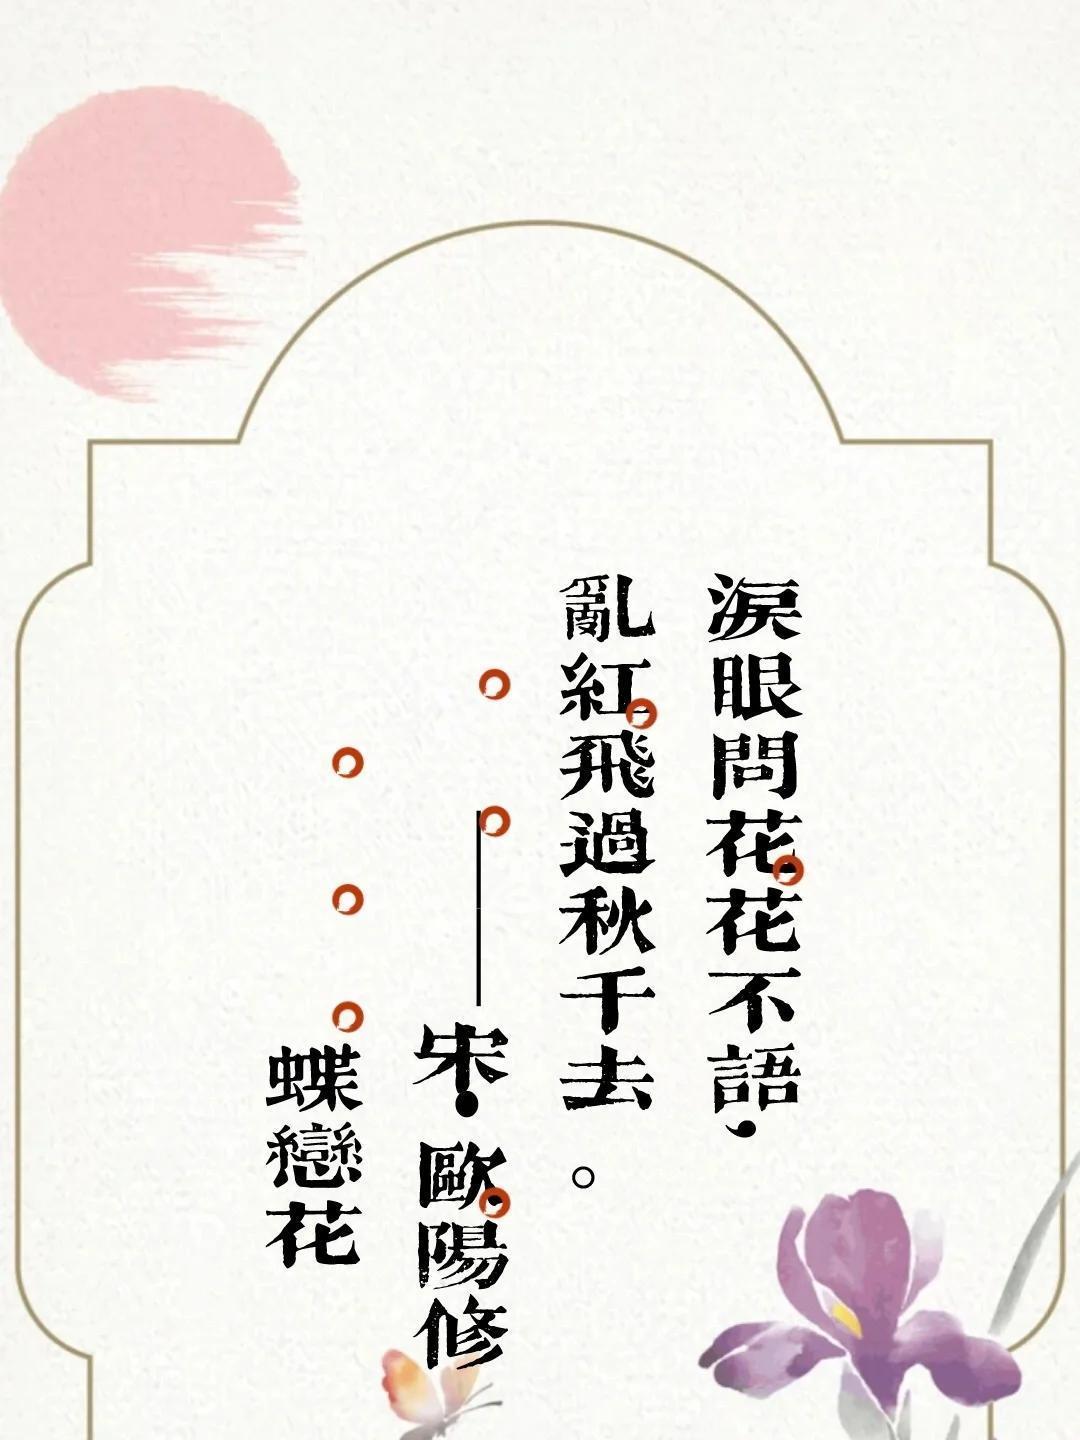 淚眼問花花不語，
亂紅飛過秋千去。
——宋·歐陽修
蝶戀花